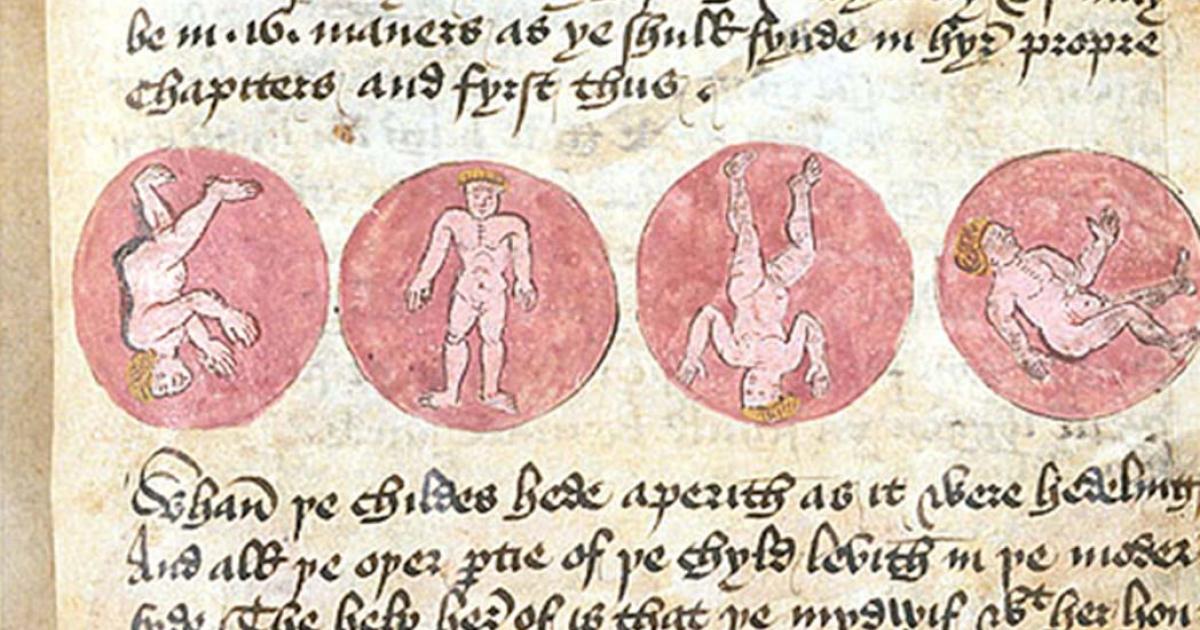 be in .16. maners as ye shull fynde in hyr propre
chapiters and fyrst thus .
Whan þe childes hede aperith as it were hedeling
And all þe oþer ptie of þe chyld levith in þe moder
syde The help her of is that þe mydwif wt her hon